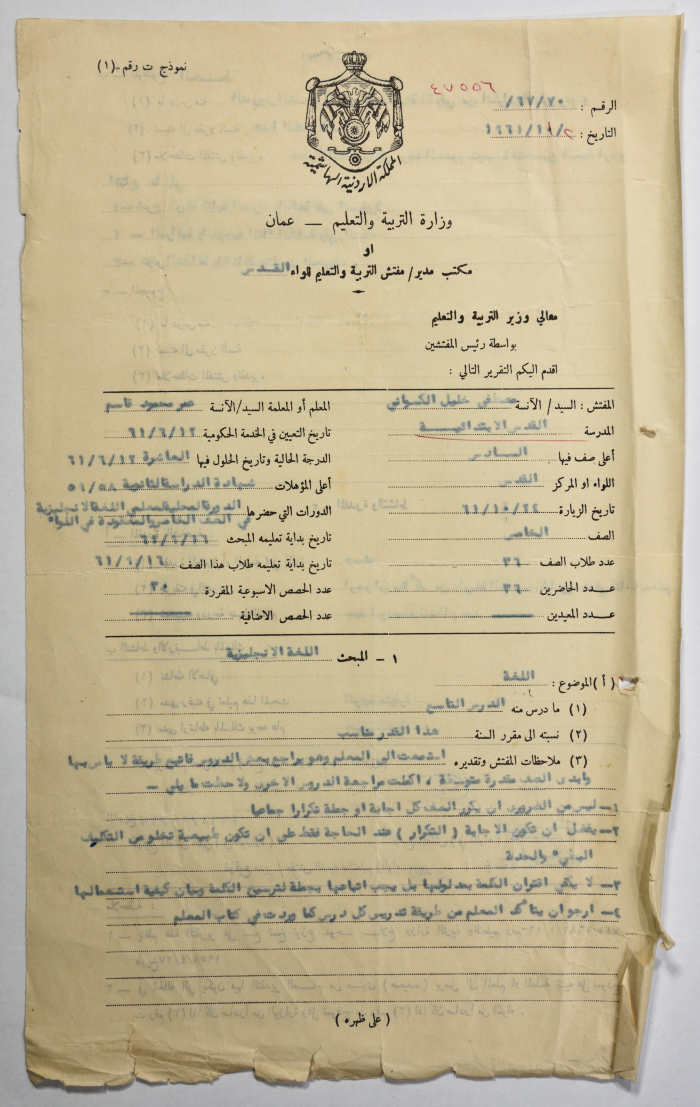 نموذج ت رقم -(١)
الرقم : ٦٧/٧٠/
التاريخ : ١٩٦١/١٠/
المملكة الاردنية الهاشمية
وزارة التربية والتعليم — عمان
او
مكتب مدير/ مفتش التربية والتعليم للواء القدس
معالي وزير التربية والتعليم
بواسطة رئيس المفتشين
اقدم اليكم التقرير التالي :
المفتش : السيد/ الآنسة مصطفى خليل الكسواني
المعلم أو المعلمة السيد/الآنسة عمر محمود قاسم
المدرسة القدس الابتدائية
تاريخ التعيين في الخدمة الحكومية ٦١/٦/١٢
أعلى صف فيها السادس
الدرجة الحالية وتاريخ الحلول فيها العاشرة ٦١/٦/١٢
اللواء او المركز القدس
أعلى المؤهلات شهادة الدراسة الثانوية
تاريخ الزيارة ٦١/١٠/٢٤
الدورات التي حضرها الدورة المحلية لمعلمي اللغة الانجليزية
في الصف الخامس والمعقودة في اللواء
الصف الخامس
تاريخ بداية تعليمه المبحث
عدد طلاب الصف ٣٦
تاريخ بداية تعليمه طلاب هذا الصف
عدد الحاضرين ٣٦
عدد الحصص الاسبوعية المقررة ٣٥
عدد المعيدين
عدد الحصص الاضافية
١ - المبحث اللغة الانجليزية
( أ ) الموضوع : اللغة
(١) ما درس منه الدرس التاسع
(٢) نسبته الى مقرر السنة هذا القدر مناسب
(٣) ملاحظات المفتش وتقديره استمعت الى المعلم وهو يراجع بعض الدروس فاتبع طريقة لا باس بها
وابدى الصف مقدرة متوسطة ، اكملت مراجعة الدروس الاخرى ولاحظت ما يلي -
١- ليس من الضرورى ان يكرر الصف كل اجابة او جملة تكرارا جماعيا
٢- يفضل ان تكون الاجابة ( التكرار ) عند الحاجة فقط على ان تكون طبيعية تخلو من التكليف
والحدة
٣- لا يكفي اقتران الكلمة بمدلولها بل يجب اتباعها بجملة لترسيخ الكلمة وبيان كيفية استعمالها
٤- ارجو ان يتأكد المعلم من طريقة تدريس كل درس كما وردت في كتاب المعلم
( على ظهره )